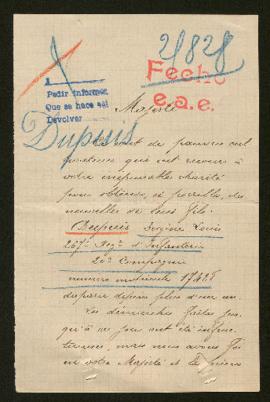 2/828
Fecho
e.a.e.
Pedir informes
Que se hace acá
Devolver
Dupuis
Majesté
Ce sont de pauvres
qui ont recours à
votre inépuisable charité
pour obtenir, si possible, des
nouvelles de leur fils.
Dupuis Louis
267e Regt d'Infanterie
20e Compagnie
numéro matricule
disparu depuis plus d'un an.
Les démarches faites jus-
qu'à ce jour ont été infruc-
tueuses, mais nous avons foi
en votre Majesté et la